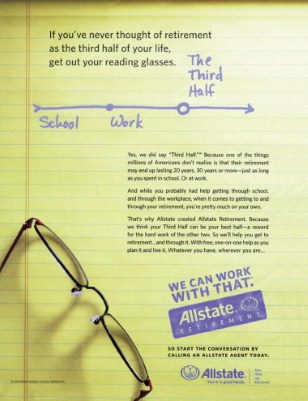 If you've never thought of retirement
as the third half of your life,
get out your reading glasses.
The
Third
Half
School
Work
Yes, we did say "Third Half.™" Because one of the things
millions of Americans don't realize is that their retirement
may end up lasting 20 years, 30 years or more—just as long
as you spent in school. Or at work.
And while you probably had help getting through school,
and through the workplace, when it comes to getting to and
through your retirement, you're pretty much on your own.
That's why Allstate created Allstate Retirement. Because
we think your Third Half can be your best half—a reward
for the hard work of the other two. So we'll help you get to
retirement...and through it. With free, one-on-one help as you
plan it and live it. Whatever you have, wherever you are...
WE CAN WORK
WITH THAT.
Allstate
RETIREMENT
SO START THE CONVERSATION BY
CALLING AN ALLSTATE AGENT TODAY.
Allstate
You're in good hands.
Auto
Home
Life
Retirement